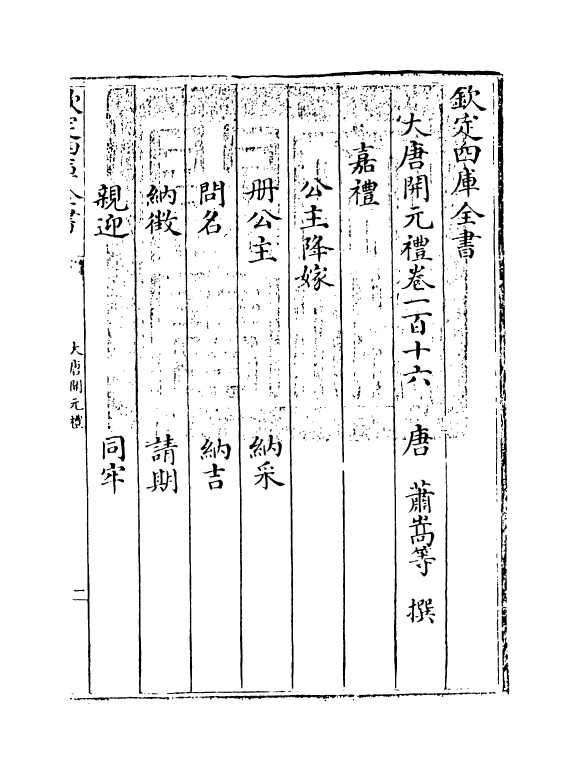 欽定四庫全書
大唐開元禮卷一百十六　唐　蕭嵩等　撰
嘉禮
公主降嫁
册公主　納采
問名　納吉
納徵　請期
親迎　同牢
欽定四庫全書
大唐開元禮
二